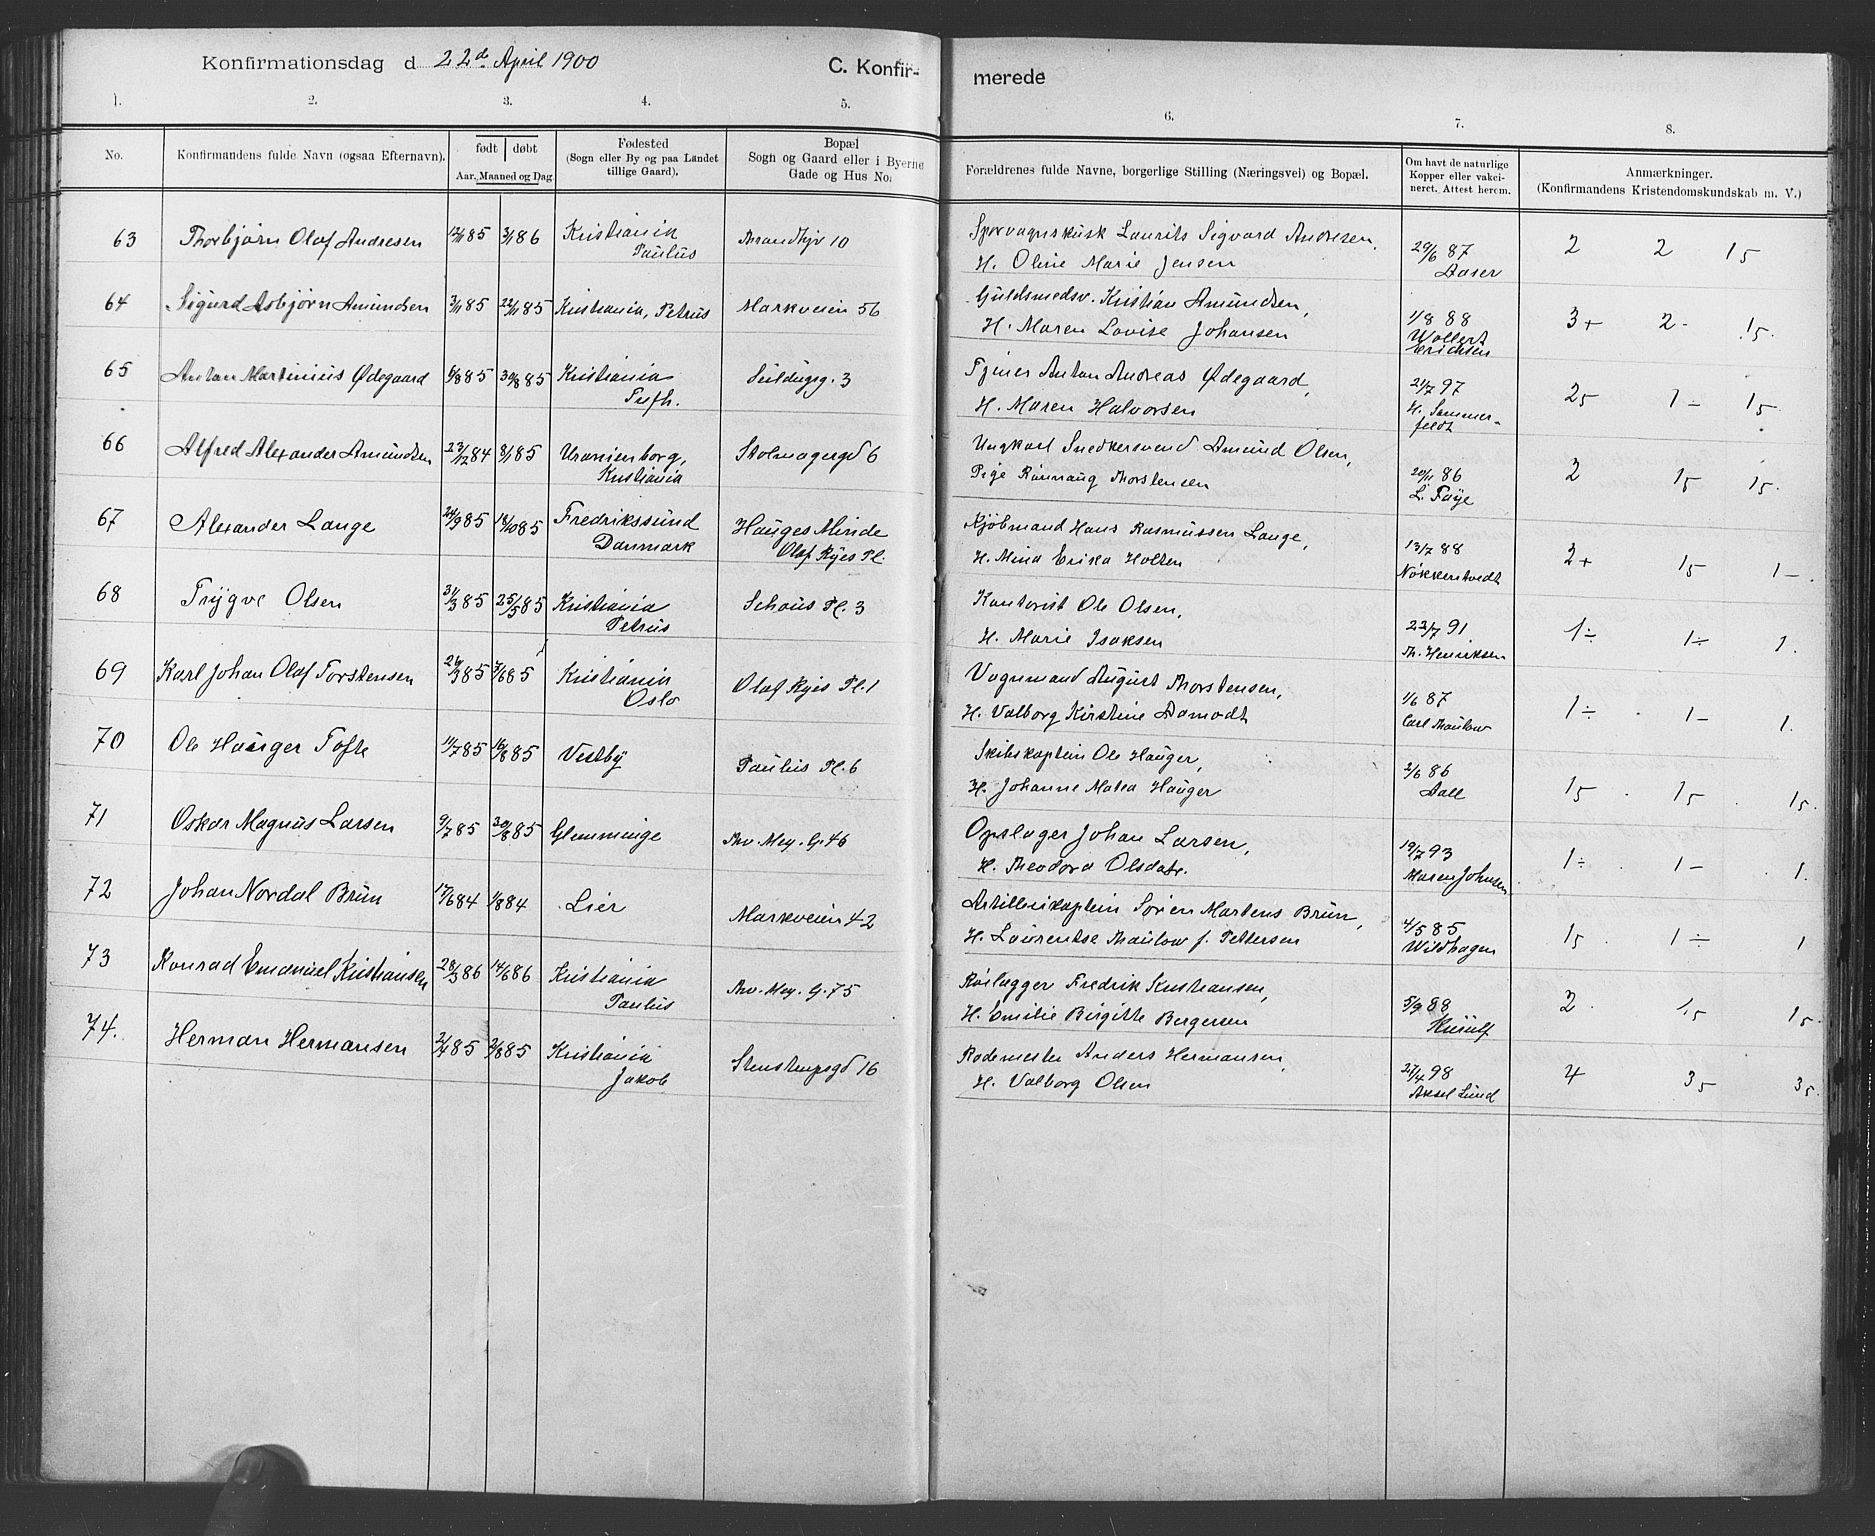 Konfirmationsdag d 22de April 1900
C. Konfir- merede
1. 2. 3. 4. 5. 6. 7. 8.
No.
Konfirmandens fulde Navn (ogsaa Efternavn).
født | døbt
Aar, Maaned og Dag
Fødested
(Sogn eller By og paa Landet
tillige Gaard).
Bopæl
Sogn og Gaard eller i Byerne
Gade og Hus No.
Forældrenes fulde Navne, borgerlige Stilling (Næringsvei) og Bopæl.
Om havt de naturlige
Kopper eller vakci-
neret. Attest herom.
Anmærkninger.
(Konfirmandens Kristendomskundskab m. V.)
63 Thorbjørn Olaf Andresen 12/11 85 3/1 86 Kristiania
Paulus
10
Sporvognskusk Laurits Sigvard Andresen,
H. Oline Marie Jensen
29/6 87
Daser
2 2 15
64 Sigurd Asbjørn Amundsen 3/11 85 22/11 85 Kristiania, Petrus Markveien 56
Guldsmedsv. Kristian Amundsen,
H. Maren Lovise Johansen
1/8 88
Wollert
Erichsen
3+ 2- 15.
65 Anton Martinius Ødegaard 6/8 85 30/8 85 Kristiania
Tufth.
Seildugsg. 3
Tjener Anton Andreas Ødegaard,
H. Maren Halvorsen
21/7 97
H. Sommer-
feldt
25 1- 15
66 Alfred Alexander Amundsen 23/12 84 8/1 85 Uranienborg,
Kristiania
Stolmagergd 6
Ungkarl Snedkersvend Amund Olsen,
Pige Rønnaug Thorstensen
20/11 86
L. Faye
2 15 15.
67 Alexander Lange 24/9 85 18/10 85 Fredrikssund
Danmark
Hauges Minde
Olaf Ryes Pl.
Kjøbmand Hans Rasmussen Lange,
H. Mina Erika Holten
13/7 88
Nøkkentvedt
2+ 15 1-.
68 Trygve Olsen 31/3 85 25/5 85 Kristiania
Petrus
Schous Pl. 3
Kontorist Ole Olsen,
H. Marie Isaksen
23/7 91
Th. Henriksen
1÷ 1÷ 1.
69 Karl Johan Olaf Torstensen 26/3 85 7/6 85 Kristiania
Oslo
Olaf Ryes Pl. 1
Vognmand August Thorstensen,
H. Valborg Kirstine Aamodt
1/6 87
Carl Thaulow
1÷ 1- 1.
70 Ole Hauger Tofte 11/7 85 16/8 85 Vestby Paulus Pl. 6
Skibskaptein Ole Hauger,
H. Johanne Matea Hauger
2/6 86
Dall
15 15 15
71 Oskar Magnus Larsen 9/7 85 30/8 85 Glemminge Thv. Mey. G. 46
Opslager Johan Larsen,
H. Theodora Olsdatr.
19/7 93
Maren Johnsen
1÷ 1- 1.
72 Johan Nordal Brun 17/6 84 1/8 84 Lier Markveien 42
Artillerikaptein Søren Martens Brun,
H. Laurentse Thaulow f. Pettersen
4/5 85
Wildhagen
15 1÷ 1
73 Konrad Emanuel Kristiansen 28/3 86 14/6 86 Kristiania
Paulus
Thv. Mey. G. 75
Rørlægger Fredrik Kristiansen,
H. Emilie Birgitte Bergersen
5/9 88
2 15 15.
74. Herman Hermansen 2/4 85 2/8 85 Kristiania
Jakob
Stenstrupsgd 16
Rodemester Anders Hermansen,
H. Valborg Olsen
27/4 98
Aksel Lund
4 35 35.